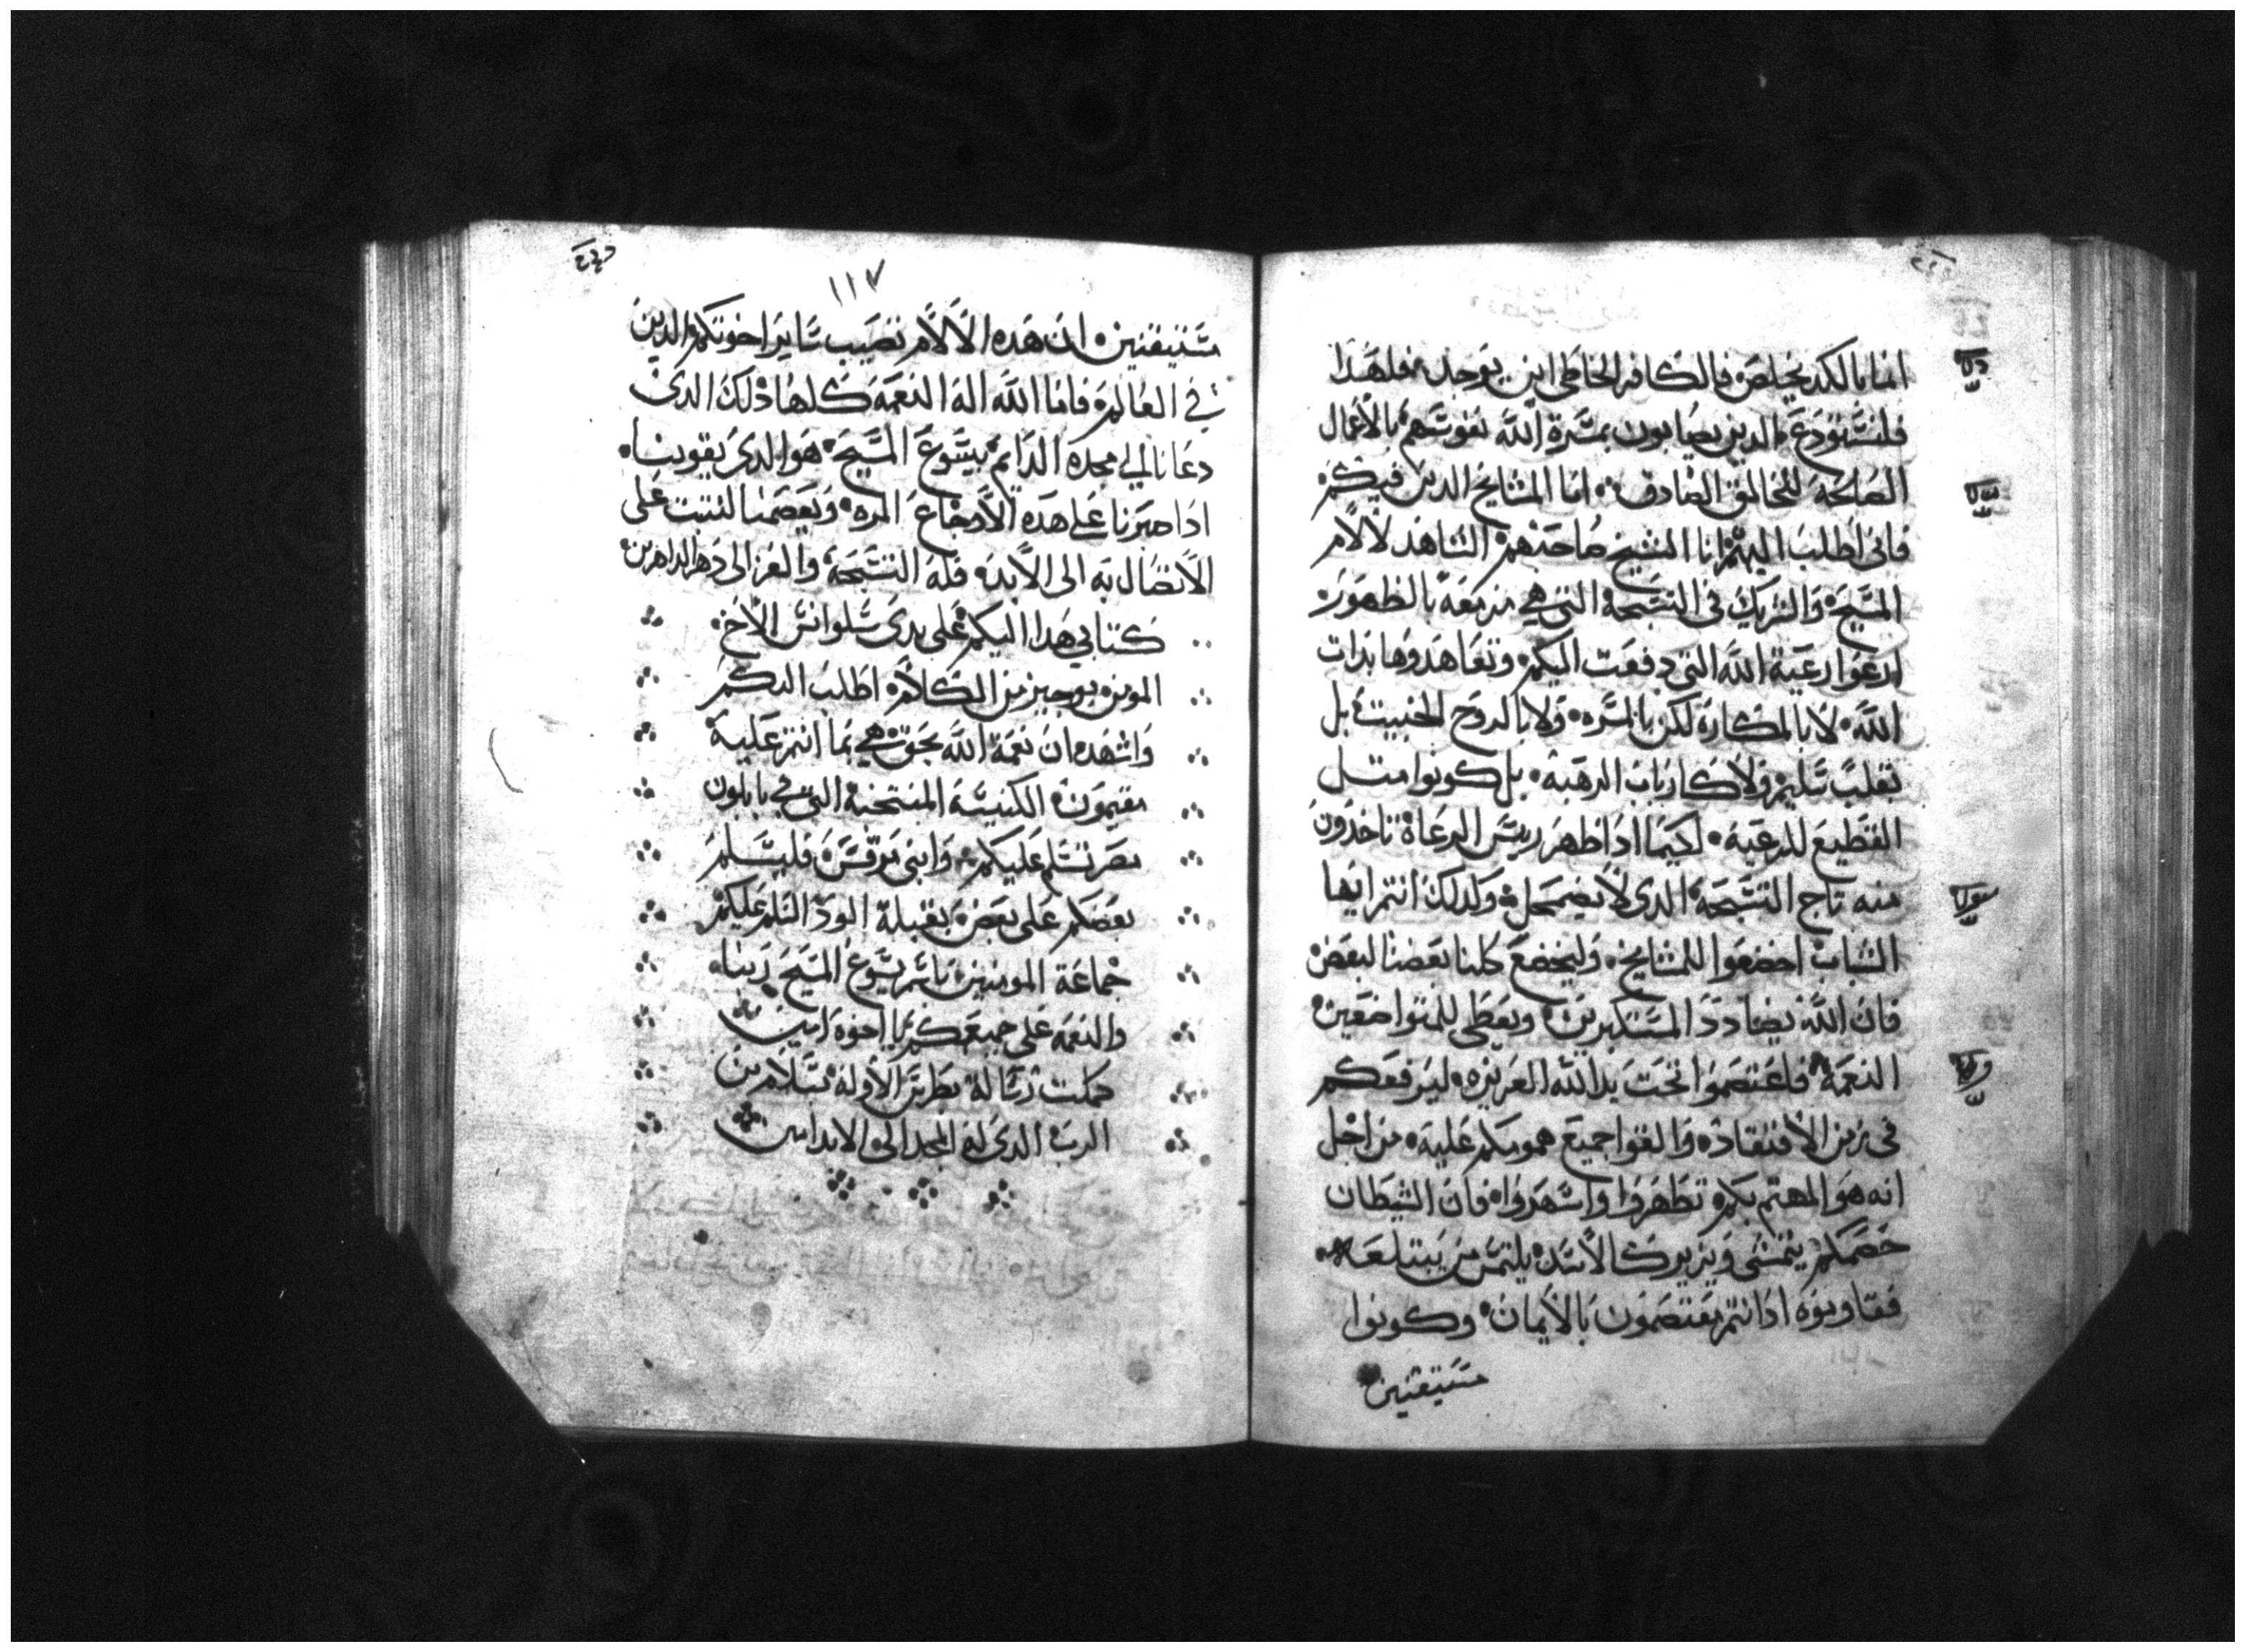 انما بالكد يخلص فالكافر الخاطى اين يوجد فلهدا
فلنستودع الدين يصابون بمسرة الله نفوسهم بالاعمال
الصالحة للخالق الصادق اما المشايخ الدين فيكم
فانى اطلب اليهم انا الشيخ صاحبهم الشاهد لالام
المسيح والشريك فى التسبحة التى هى مزمعة بالظهور
ارعوا رعية الله التى دفعت اليكم وتعاهدوها بدات
الله لا بالمكاره لكن بالمسره ولا بالروح الخبيث بل
بقلب سليم ولا كارباب الرهبة بل كونوا متل
القطيع للرعية لكيما ادا ظهر ريس الرعاة تاخدون
منه تاج التسبحة الدى لا يضمحل ولدلك انتم ايها
الشباب اخضعوا للمشايخ وليخضع كلنا بعضنا لبعض
فان الله يضادد المستكبرين ويعطى للمتواضعين
النعمة فاعتصموا تحت يد الله العزيزه ليرفعكم
فى زمن الافتقاد والقوا جميع همومكم عليه من اجل
انه هو المهتم بكم تطهروا واسهروا فان الشيطان
خصمكم يتمشى ويزير كالاسد يلتمس من يبتلعه
فقاوموه ادانتم تعتصمون بالايمان وكونوا
مستيقنين
١١٧
مستيقنين ان هده الالام تصيب ساير اخوتكم الدين
فى العالم فاما الله اله النعمة كلها دلك الدى
دعانا الى مجده الدايم بيسوع المسيح هو الدى يقوينا
ادا صبرنا على هده الاوجاع المره ويعصمنا لنتبت على
الاتصال به الى الابد فله التسبحة والعز الى دهر الداهرين
كتابي هدا اليكم على يدى سلوانس الاخ
المومن بوجيز من الكلام اطلب اليكم
واشهد ان نعمة الله بحق هى بما انتم عليه
مقيمون الكنيسة المنتخبة التى فى بابلون
مصر تسلم عليكم وابنى مرقس فليسلم
بعضكم على بعض بقبلة الود السلم عليكم
جماعة المومنين باسم يسوع المسيح ربنا
والنعمة على جميعكم يا اخوة امين
كملت رسالة بطرس الاولة بسلام من
الرب الدى له المجد الى الابد امين